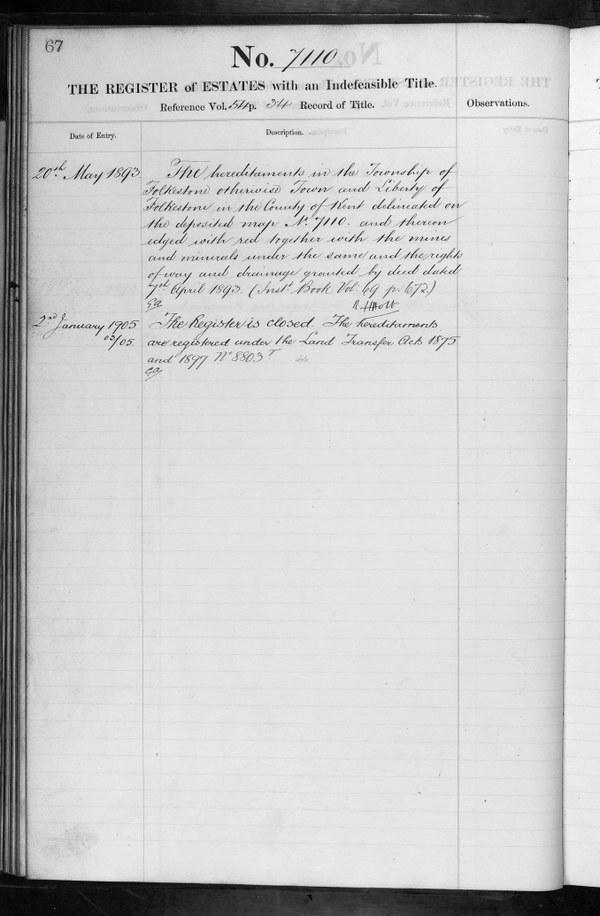 67
No. 7110
THE REGISTER of ESTATES with an Indefeasible Title.
Reference Vol. 54 p. 34 Record of Title.
Observations.
Date of Entry.
Description.
20th May 1893
The hereditaments in the Township of
Folkestone otherwise Town and Liberty of
Folkestone in the County of Kent delineated on
the deposited map No. 7110 and thereon
edged with red together with the mines
and minerals under the same and the rights
of way and drainage granted by deed dated
7th April 1893. (Inst. Book Vol. 69 p. 672)
2nd January 1905
The Register is closed. The hereditaments
03/05.
are registered under the Land Transfer Acts 1875
and 1897 No 8803